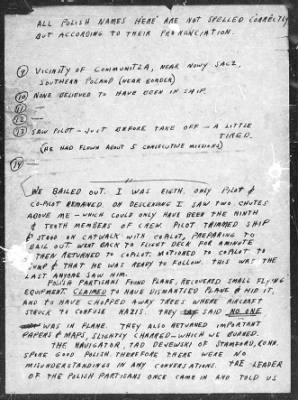 ALL POLISH NAMES HERE ARE NOT SPELLED CORRECTLY
BUT ACCORDING TO THEIR PRONUNCIATION.
9 VICINITY OF COMMUNITZA, NEAR NOWY SACZ,
SOUTHERN POLAND (NEAR BORDER)
10 NONE BELIEVED TO HAVE BEEN IN SHIP
11 —
12 —
13 SAW PILOT - JUST BEFORE TAKE OFF - A LITTLE
TIRED.
(HE HAD FLOWN ABOUT 5 CONSECUTIVE MISSIONS)
14 —
WE BAILED OUT. I WAS EIGTH. ONLY PILOT &
CO-PILOT REMAINED. ON DESCENDING I SAW TWO CHUTES
ABOVE ME - WHICH COULD ONLY HAVE BEEN THE NINTH
& TENTH MEMBERS OF CREW. PILOT TRIMMED SHIP
& STOOD ON CATWALK WITH COPILOT, PREPARING TO
BAIL OUT. WENT BACK TO FLIGHT DECK FOR A MINUTE
THEN RETURNED TO COPILOT. MOTIONED TO COPILOT TO
JUMP & THAT HE WAS READY TO FOLLOW. THIS WAS THE
LAST ANYONE SAW HIM.
POLISH PARTISANS FOUND PLANE, RECOVERED SMALL FLYING
EQUIPMENT. CLAIMED TO HAVE DISMANTLED PLACE & HID IT,
AND TO HAVE CHOPPED AWAY TREES WHERE AIRCRAFT
STRUCK TO CONFUSE NAZIS. THEY SAID NO ONE
WAS IN PLANE. THEY ALSO RETURNED IMPORTANT
PAPERS & MAPS, SLIGHTLY CHARRED - WHICH WE BURNED.
THE NAVIGATOR, TAD DEVEWSKI OF STAMFORD, CONN.
SPOKE GOOD POLISH THEREFORE THERE WERE NO
MISUNDERSTANDINGS IN ANY CONVERSATIONS. THE LEADER
OF THE POLISH PARTISANS ONCE CAME IN AND TOLD US